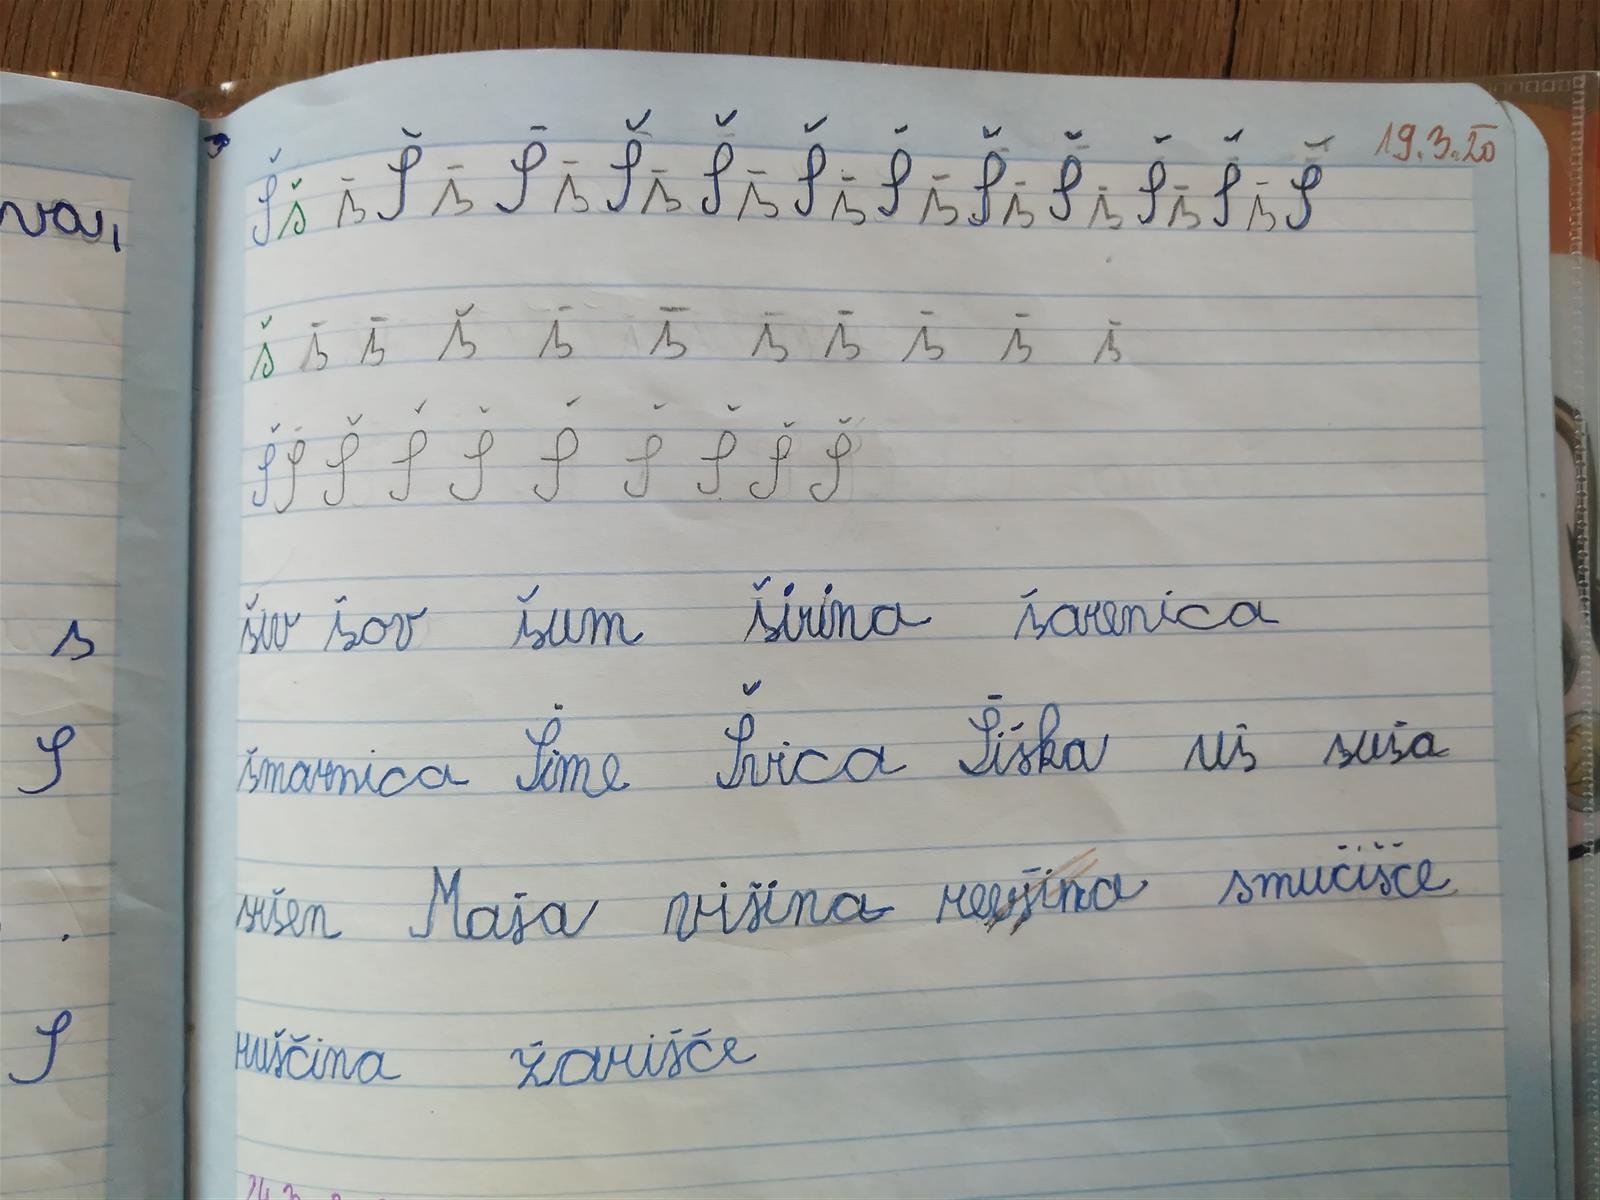 va,
s
S
S
19.3.20
Š š š Š š Š š Š š Š š Š š Š š Š š Š š Š š Š š Š
š š š š š š š š š š š
Š Š Š Š Š Š Š Š Š Š
šiv šov šum širina šarenica
šmarnica Šime Švica Šiška uš suša
sršen Maša višina smučišče
ruščina žarišče